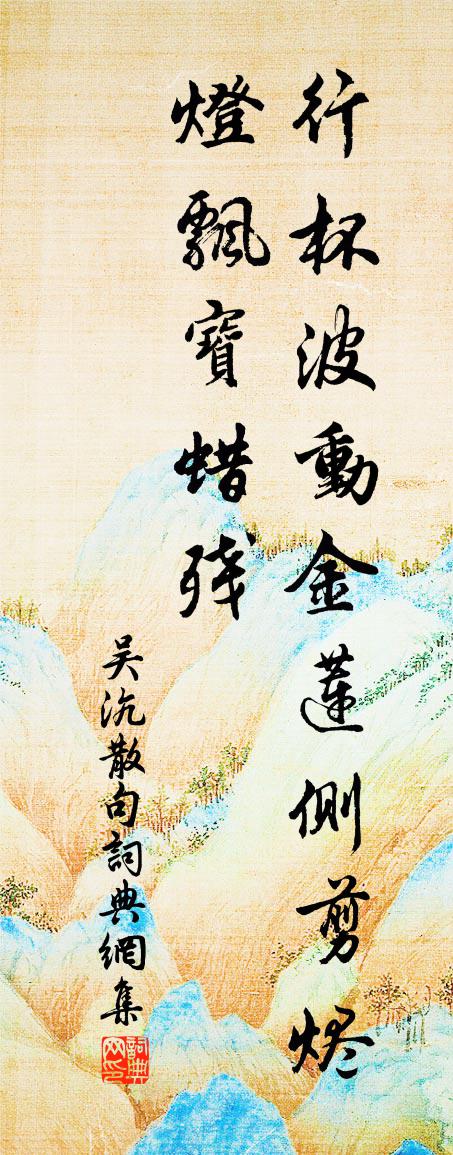 行杯波動金蓮側剪烬
燈飄寶蜡残
吴沉散句詞典網集
詞典网印